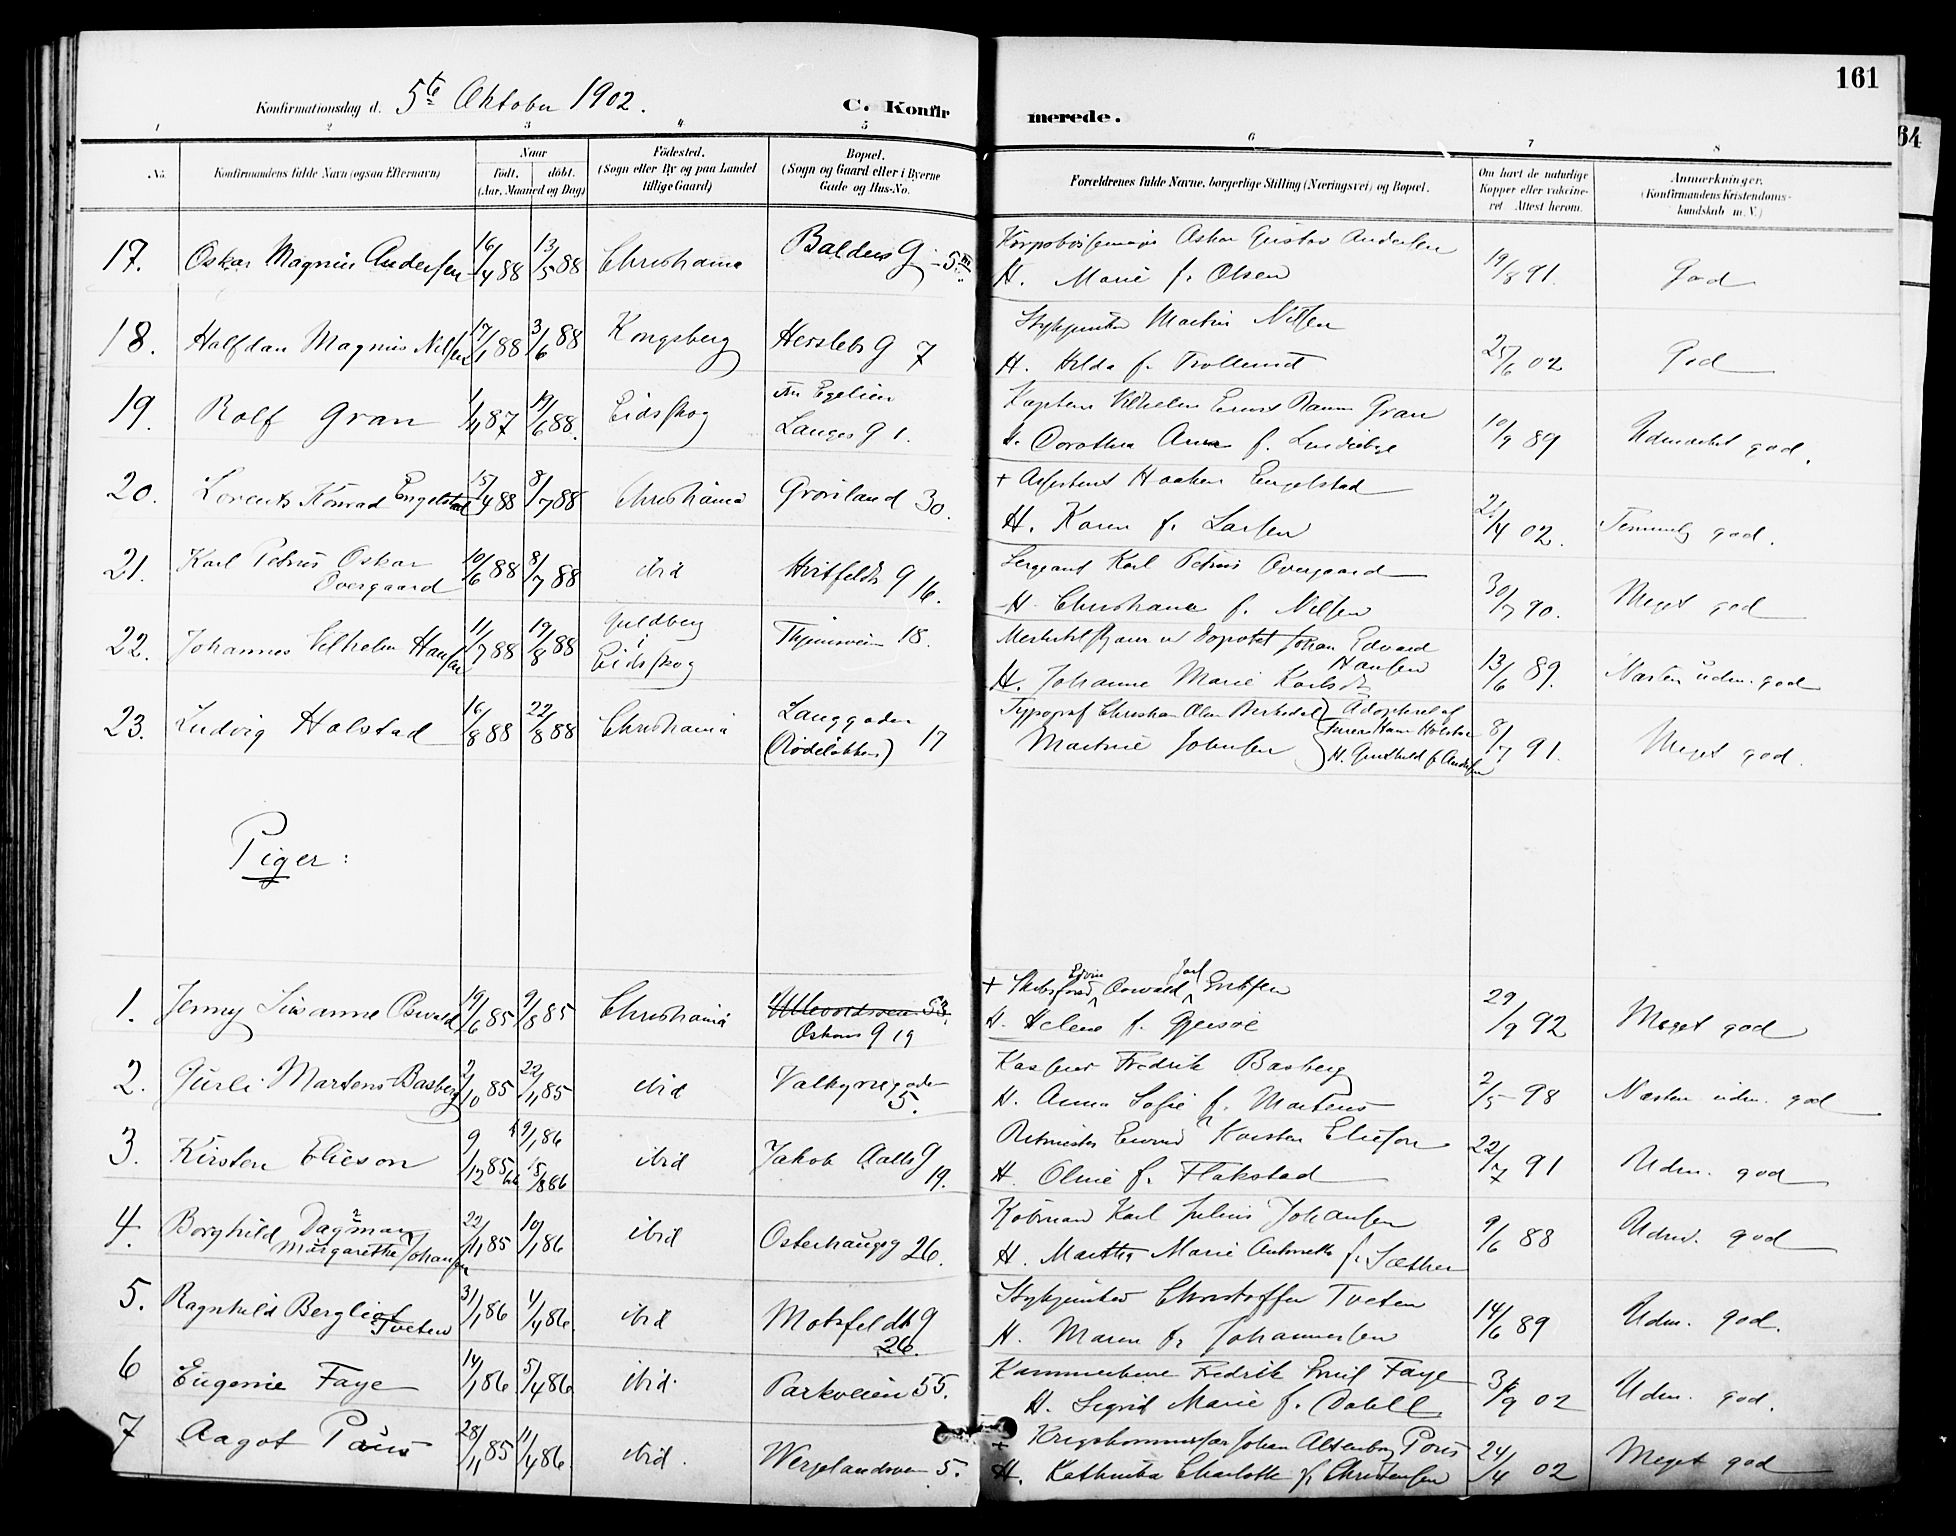 161
64
Konfirmationsdag d. 5te Oktober 1902.
C. Konfirmerede.
1 2 3 4 5 6 7 8
No.
Konfirmandens fulde Navn (ogsaa Efternavn)
Naar
födt. döbt.
(Aar, Maaned og Dag)
Födested.
(Sogn eller By og paa Landet
tillige Gaard)
Bopæl.
(Sogn og Gaard eller i Byerne
Gade og Hus-No.
Forældrenes fulde Navne, borgerlige Stilling (Næringsvei) og Bopæl.
Om havt de naturlige
Kopper eller vakcine-
ret Attest herom.
Anmærkninger.
(Konfirmandens Kristendoms-
kundskab m. V.)
17. Oskar Magnus Andersen 16/4 88 13/5 88 Christiania Balders G 5
Oskar Gustav Andersen
H. Marie f. Olsen 19/8 91. God
18. Halfdan Magnus Nilsen 17/1 88 3/6 88 Kongsberg Herslebs G 7
Martin Nilsen
H. Hilda f. 25/6 02 God
19. Rolf Gran 1/11 87 19/6 88. Eidskog
Langes G 1.
Kaptein Vilhelm Ernst Gran
H. Dorothea Anna f. 10/9 89 Udmærket god.
20. Lorents Konrad Engelstad 15/4 88 8/7 88 Christiania Grönland 30.
+ Assistent Haakon Engelstad
H. Karen f. Larsen 2/4 02. Temmelig god.
21. Karl Petrus Oskar
Overgaard 10/6 88 8/7 88 ibid Hvitfeldts G 16.
Sergeant Karl Petrus Overgaard
H. Christiana f. Nilsen 30/7 90. Meget god
22. Johannes Vilhelm Hansen 11/7 88 19/8 88
i
Eidskog 18.
Johan Edvard
Hansen
H. Johanne Marie Karlsdr 13/6 89. Næsten udm. god
23. Ludvig Holstad 16/8 88 22/8 88 Christiania Langgaden
(Rodelökken) 17
Typograf Christian Olsen } Adopteret af
Martine Johnsen
H. Gunhild f. Andersen 8/7 91. Meget god.
Piger:
1. Jenny Susanne Oswald 19/6 85 9/8 85 Christiania Ullevoldsveien 53.
Oskars G 19
+ Oswald Eriksen
H. Helene f. 29/9 92 Meget god
2. Gurli Martens Basberg 2/10 85 22/11 85 ibid Valkyriegaden
5.
Kasserer Fredrik Basberg
H. Anna Sofie f. Martens 2/5 98 Næsten udm. god
3. Kirsten Elieson 9/12 85 ibid Jakob Aalls G
19.
Ritmester Karsten Elieson
H. Oline f. Flakstad 22/7 91 Udm. god
4. Borghild Dagmar
Margarethe Johansen 22/11 85 10/1 86 ibid Osterhausg 26.
Karl Julius Johansen
H. Martha Marie Antonette f. Sæther 9/6 88 Udm. god
5. Ragnhild Bergliot
Tveten 31/1 86 4/4 86. ibid Motzfeldts G
26.
Christoffer Tveten
H. Maren f. Johannesen 14/6 89 Udm. god.
6 Eugenie Faye 14/1 86 5/4 86 ibid. Parkveien 55.
Kammerherre Fredrik Emil Faye
H. Sigrid Marie f. 02 Udm. god.
7 Aagot Paus 28/11 85 11/4 86. ibid. Wergelandsveien 5.
+ Krigskommissær Johan Altenborg Paus
H. Kathinka Charlotte f. Christensen 24/4 02 Meget god